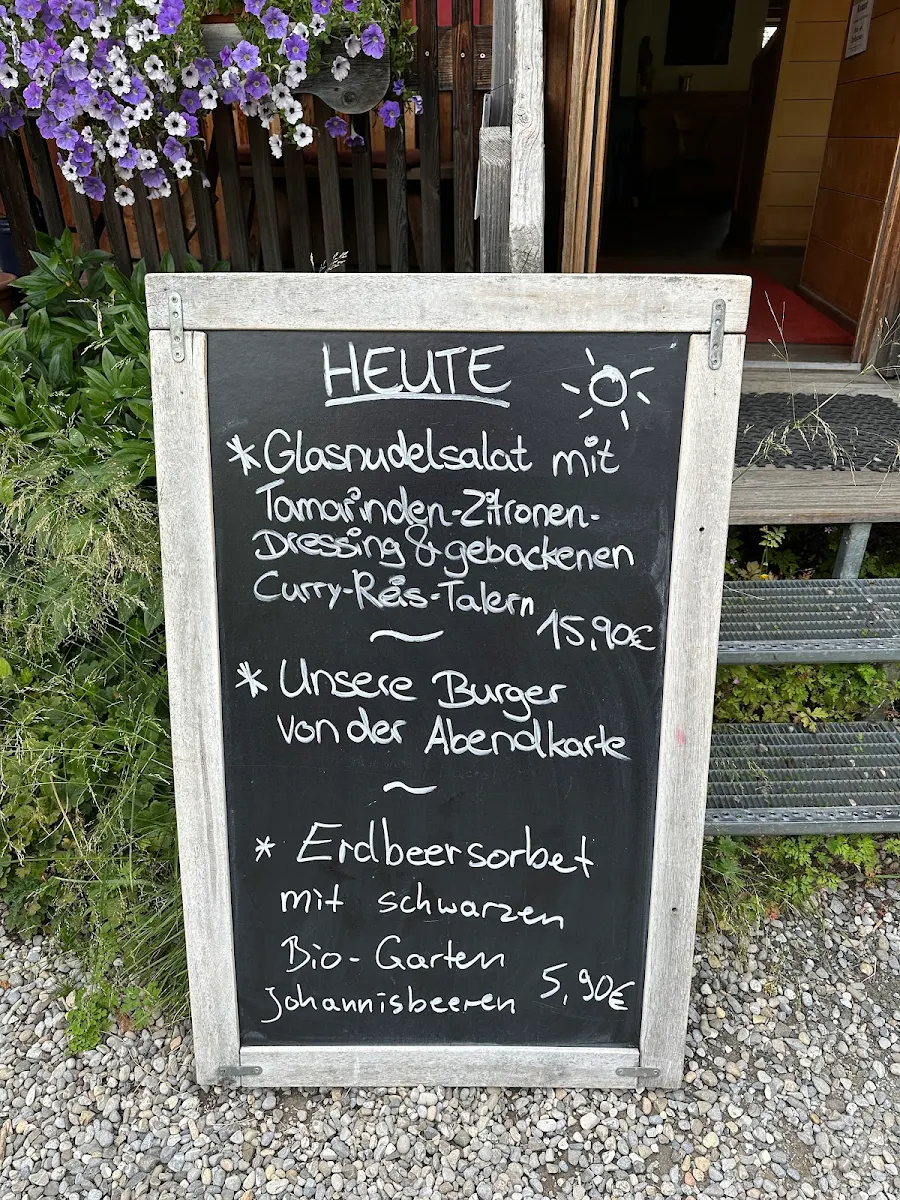 HEUTE
*Glasnudelsalat mit
Tamarinden-Zitronen-
Dressing & gebackenen
Curry-Reis-Talern
15,90€
~
*Unsere Burger
von der Abendkarte
~
* Erdbeersorbet
mit schwarzen
Bio-Garten
Johannisbeeren 5,90€